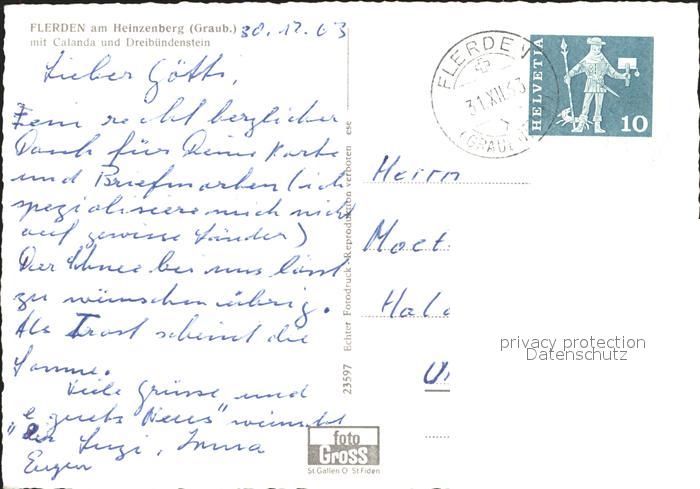 FLERDEN am Heinzenberg (Graub.)
mit Calanda und Dreibündenstein
30.12.63
Lieber Götti,
recht herzlicher
Dank für Deine Karte
und Briefmarken (ich
spezialisiere mich nicht
auf gewisse Länder)
Der Schnee bei uns lässt
zu wünschen übrig.
Als Trost scheint die
Sonne.
Viele Grüsse und
"e guets Neus" wünscht
Eugen
23597 Echter Fotodruck · Reproduktion verboten ese
foto
Gross
St. Gallen O St Fiden
FLERDEN
31.XII.63
(GRAUB
HELVETIA
10
Herrn
privacy protection
Datenschutz